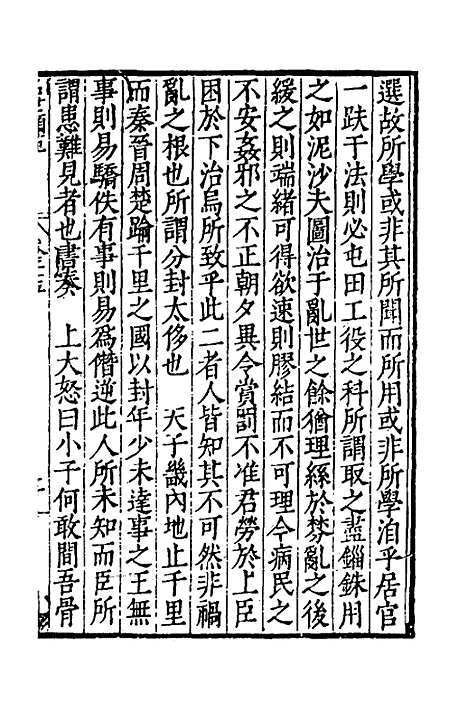 選故所學或非其所聞而所用或非所學洎乎居官
一跌于法則必屯田工役之科所謂取之盡錙銖用
之如泥沙夫圖治于亂世之餘猶理絲於棼亂之後
緩之則端緒可得欲速則膠結而不可理今病民之
不安姦邪之不正朝夕異令賞罰不准君勞於上臣
困於下治烏所致乎此二者人皆知其不可然非禍
亂之根也所謂分封太侈也　天子畿內地止千里
而秦晉周楚踰千里之國以封年少未達事之王無
事則易驕佚有事則易爲僭逆此人所未知而臣所
謂患難見者也書奏　上大怒曰小子何敢間吾骨